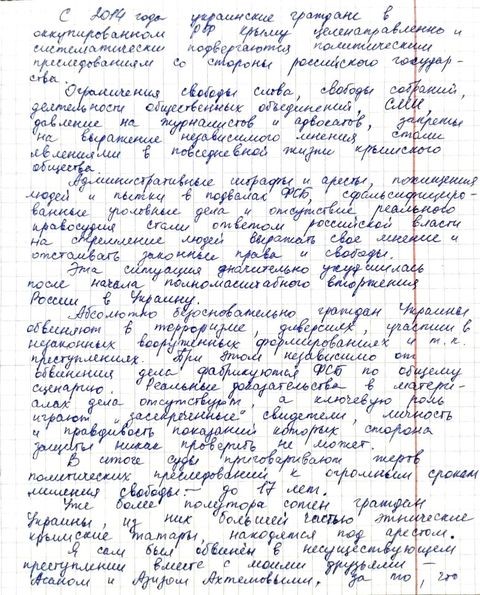 С 2014 года украинские граждане в
оккупированном РФ Крыму целенаправленно и
систематически подвергаются политическим
преследованиям со стороны российского государ-
ства.
Ограничения свободы слова, свободы собраний,
деятельности общественных объединений, СМИ,
давление на журналистов и адвокатов, запреты
на выражение независимого мнения стали
явлениями в повседневной жизни крымского
общества.
Административные штрафы и аресты, похищения
людей и пытки в подвалах ФСБ, сфальсифициро-
ванные уголовные дела и отсутствие реального
правосудия стали ответом российской власти
на стремление людей выражать свое мнение и
отстаивать законные права и свободы.
Эта ситуация значительно ухудшилась
после начала полномасштабного вторжения
России в Украину.
Абсолютно безосновательно граждан Украины
обвиняют в терроризме, диверсиях, участии в
незаконных вооруженных формированиях и т.к.
преступлениях. При этом независимо от
обвинения дела фабрикуются ФСБ по общему
сценарию. Реальные доказательства в матери-
алах дела отсутствуют, а ключевую роль
играют "засекреченные" свидетели, личность
и правдивость показаний которых сторона
защиты никак проверить не может.
В итоге суды приговаривают жертв
политических преследований к огромным срокам
лишения свободы - до 17 лет.
Уже более полутора сотен граждан
Украины, из них большей частью этнические
крымские татары, находятся под арестом.
Я сам был обвинён в несуществующем
преступлении вместе с моими друзьями -
Асаном и Азизом Ахтемовыми. За то, что